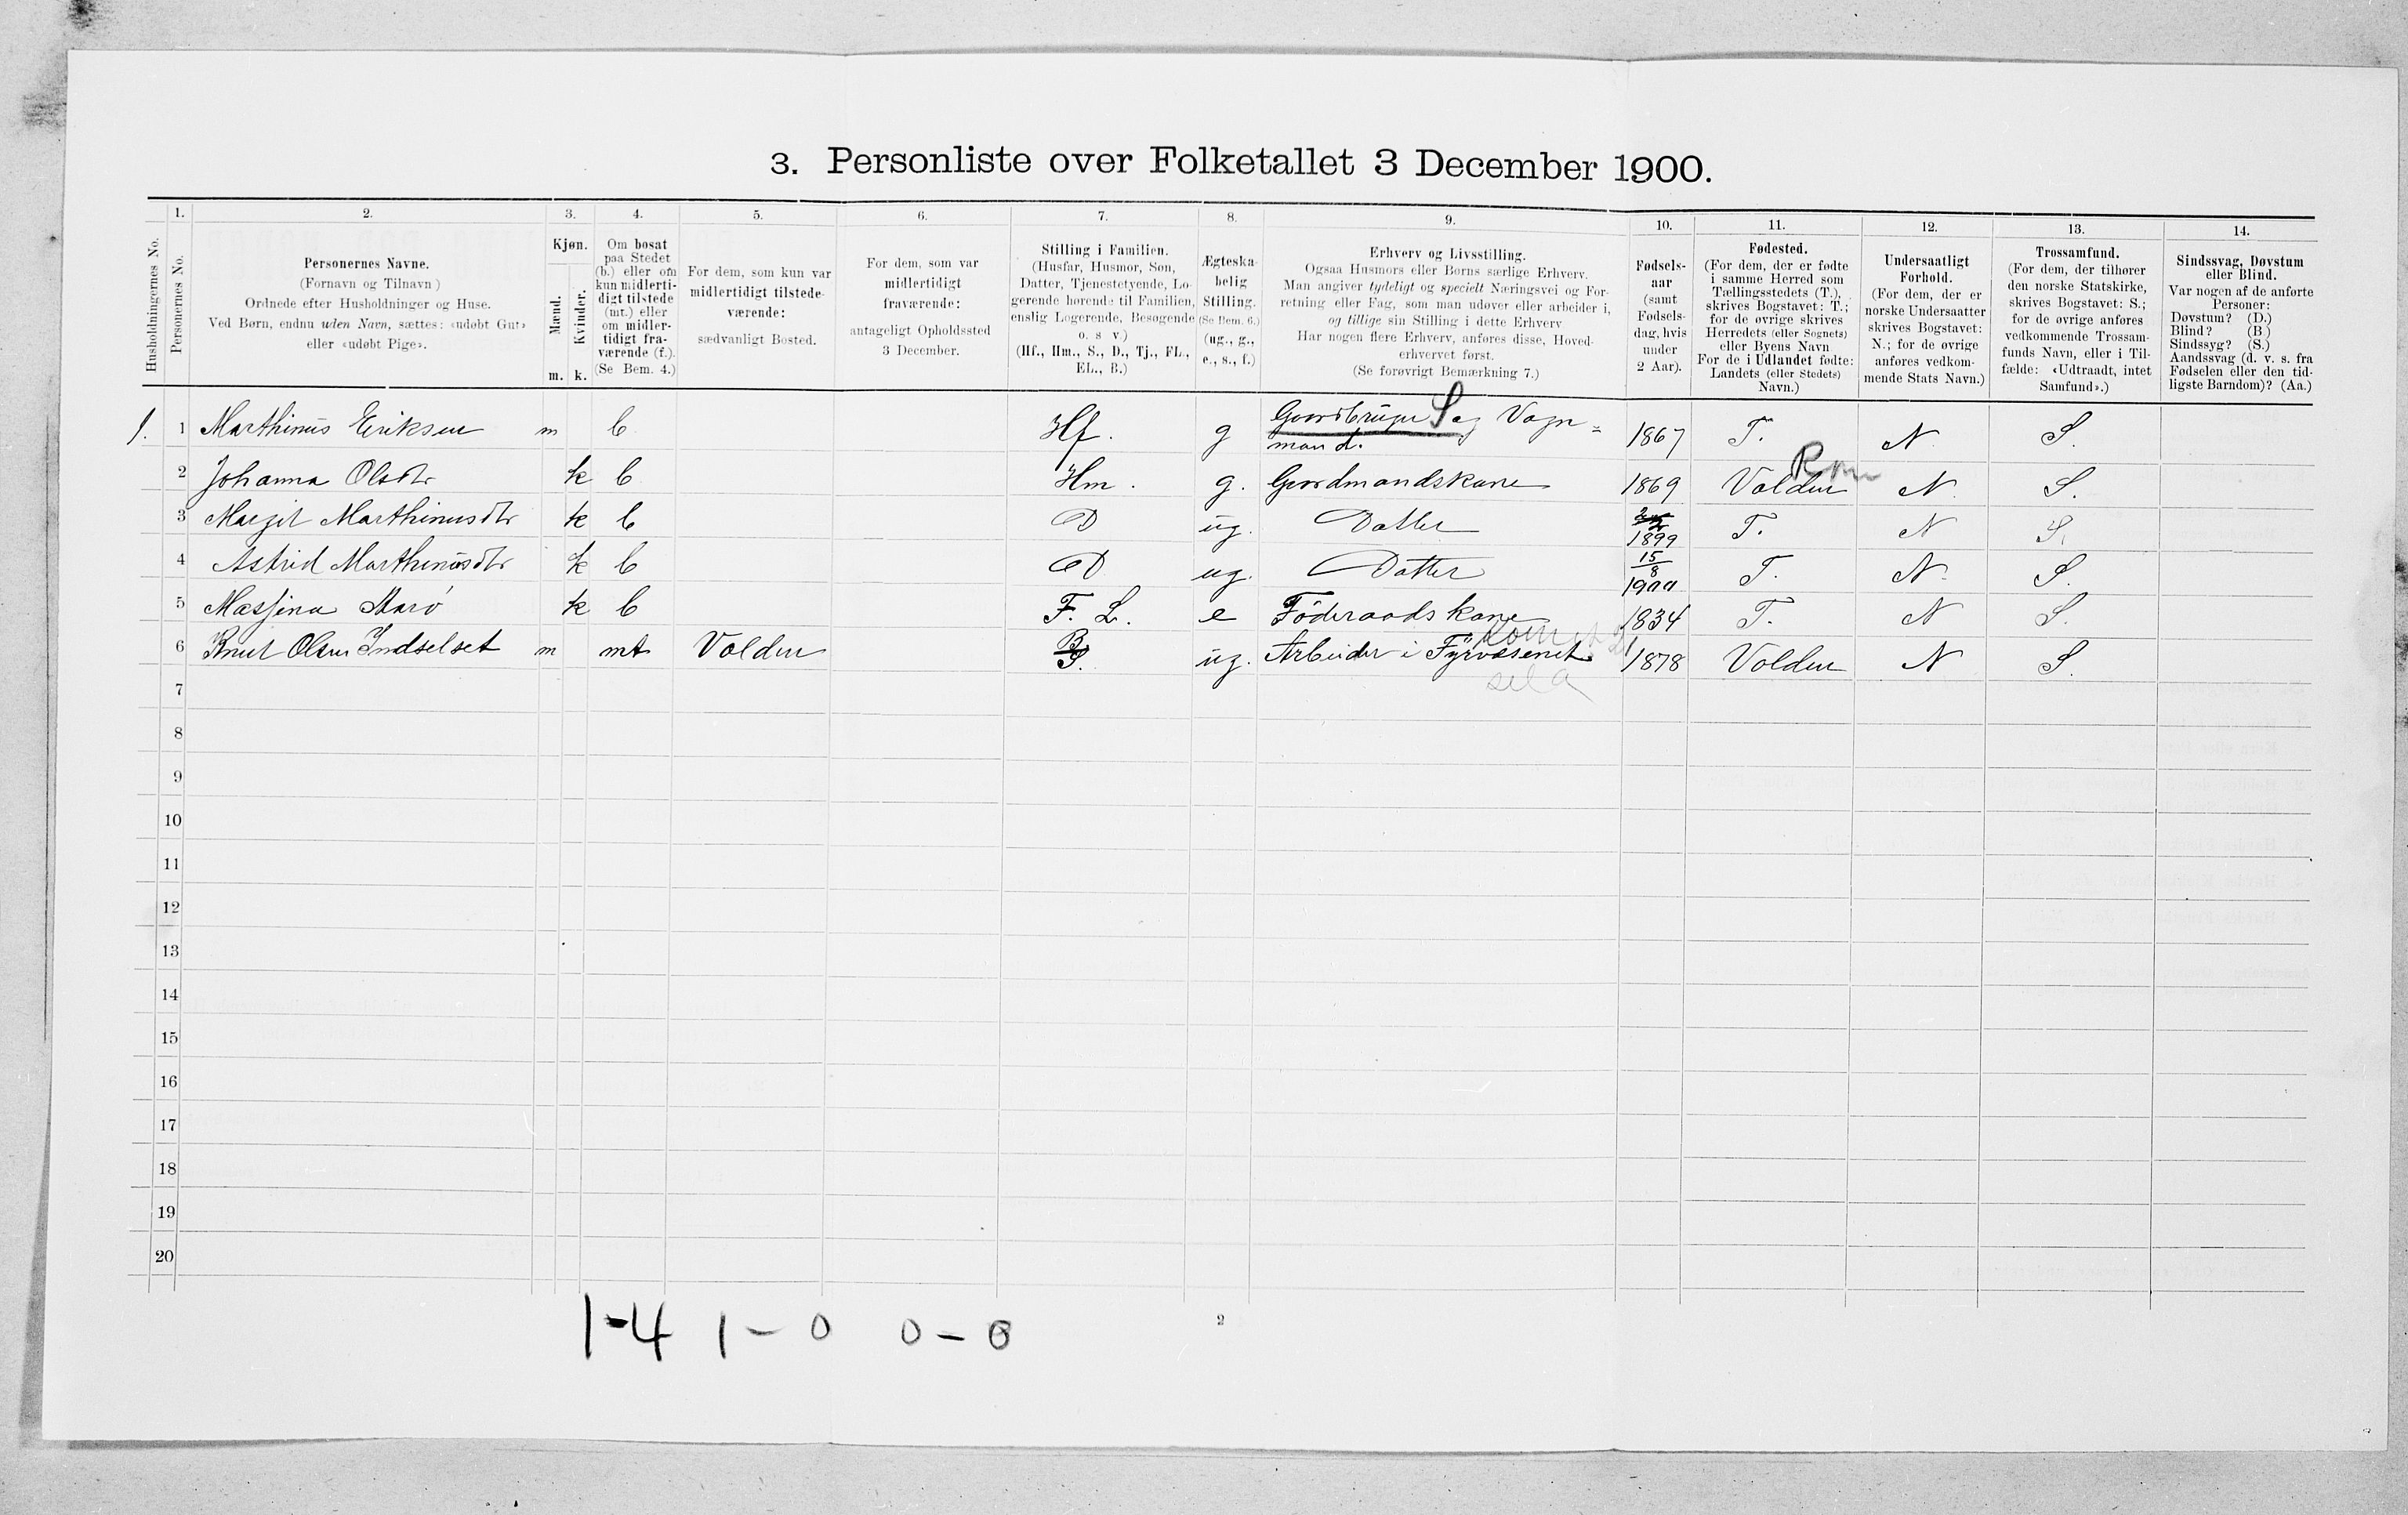 3. Personliste over Folketallet 3 December 1900.
Husholdningernes No.
1.
Personernes No.
2.
Personernes Navne.
(Fornavn og Tilnavn)
Ordnede efter Husholdninger og Huse.
Ved Børn, endnu uden Navn, sættes: «udøbt Gut»
eller «udøbt Pige».
3.
Kjøn.
Mænd.
Kvinder.
m. k.
4.
Om bosat
paa Stedet
(b.) eller om
kun midlerti-
digt tilstede
(mt.) eller
om midler-
tidigt fra-
værende (f.).
(Se Bem. 4.)
5.
For dem, som kun var
midlertidigt tilstede-
værende:
sædvanligt Bosted.
6.
For dem, som var
midlertidigt
fraværende:
antageligt Opholdssted
3 December.
7.
Stilling i Familien.
(Husfar, Husmor, Søn,
Datter, Tjenestetyende, Lo-
gerende hørende til Familien,
enslig Logerende, Besøgende
o. s v.)
(Hf., Hm., S., D., Tj., FL.,
EL., B.)
8.
Ægteska-
belig
Stilling.
(Se Bem. 6.)
(ug., g.,
e., s., f.)
9.
Erhverv og Livsstilling.
Ogsaa Husmors eller Børns særlige Erhverv.
Man angiver tydeligt og specielt Næringsvei og For-
retning eller Fag, som man udøver eller arbeider i,
og tillige sin Stilling i dette Erhverv
Har nogen flere Erhverv, anføres disse, Hoved-
erhvervet først.
(Se forøvrigt Bemærkning 7.)
10.
Fødsels-
aar
(samt
Fødsels-
dag, hvis
under
2 Aar).
11.
Fødested.
(For dem, der er fødte
i samme Herred som
Tællingsstedets (T.),
skrives Bogstavet: T.;
for de øvrige skrives
Herredets (eller Sognets)
eller Byens Navn
For de i Udlandet fødte:
Landets (eller Stedets)
Navn.)
12.
Undersaatligt
Forhold.
(For dem, der er
norske Undersaatter
skrives Bogstavet:
N.; for de øvrige
anføres vedkom-
mende Stats Navn.)
13.
Trossamfund.
(For dem, der tilhører
den norske Statskirke,
skrives Bogstavet: S.;
for de øvrige anføres
vedkommende Trossam-
funds Navn, eller i Til-
fælde: «Udtraadt, intet
Samfund».)
14.
Sindssvag, Døvstum
eller Blind.
Var nogen af de anførte
Personer:
Døvstum? (D.)
Blind? (B.)
Sindssyg? (S.)
Aandssvag (d. v. s. fra
Fødselen eller den tid-
ligste Barndom)? (Aa.)
1. 1 Marthinus Eriksen m b Hf. g Gaardbruger S og Vogn=
mand. 1867 T. N. S.
2 Johanna Olsdtr k b Hm. g. Gardmandskone 1869 Volden N. S.
3 Margit Marthinusdtr k b D ug. Datter 1899 T. N S.
4 Astrid Marthinusdtr k b D ug. Datter 15/8 1900 T. N. S.
5 Massina Marö k b F. L. e Föderaadskone 1834 T. N S.
6 Knut Olsen Indselset m mt Volden B S. ug. Arbeider i Fyrvæsenet 1878 Volden N S.
7
8
9
10
11
12
13
14
15
16
17
18
19
20
1-4 1-0 0-0
2